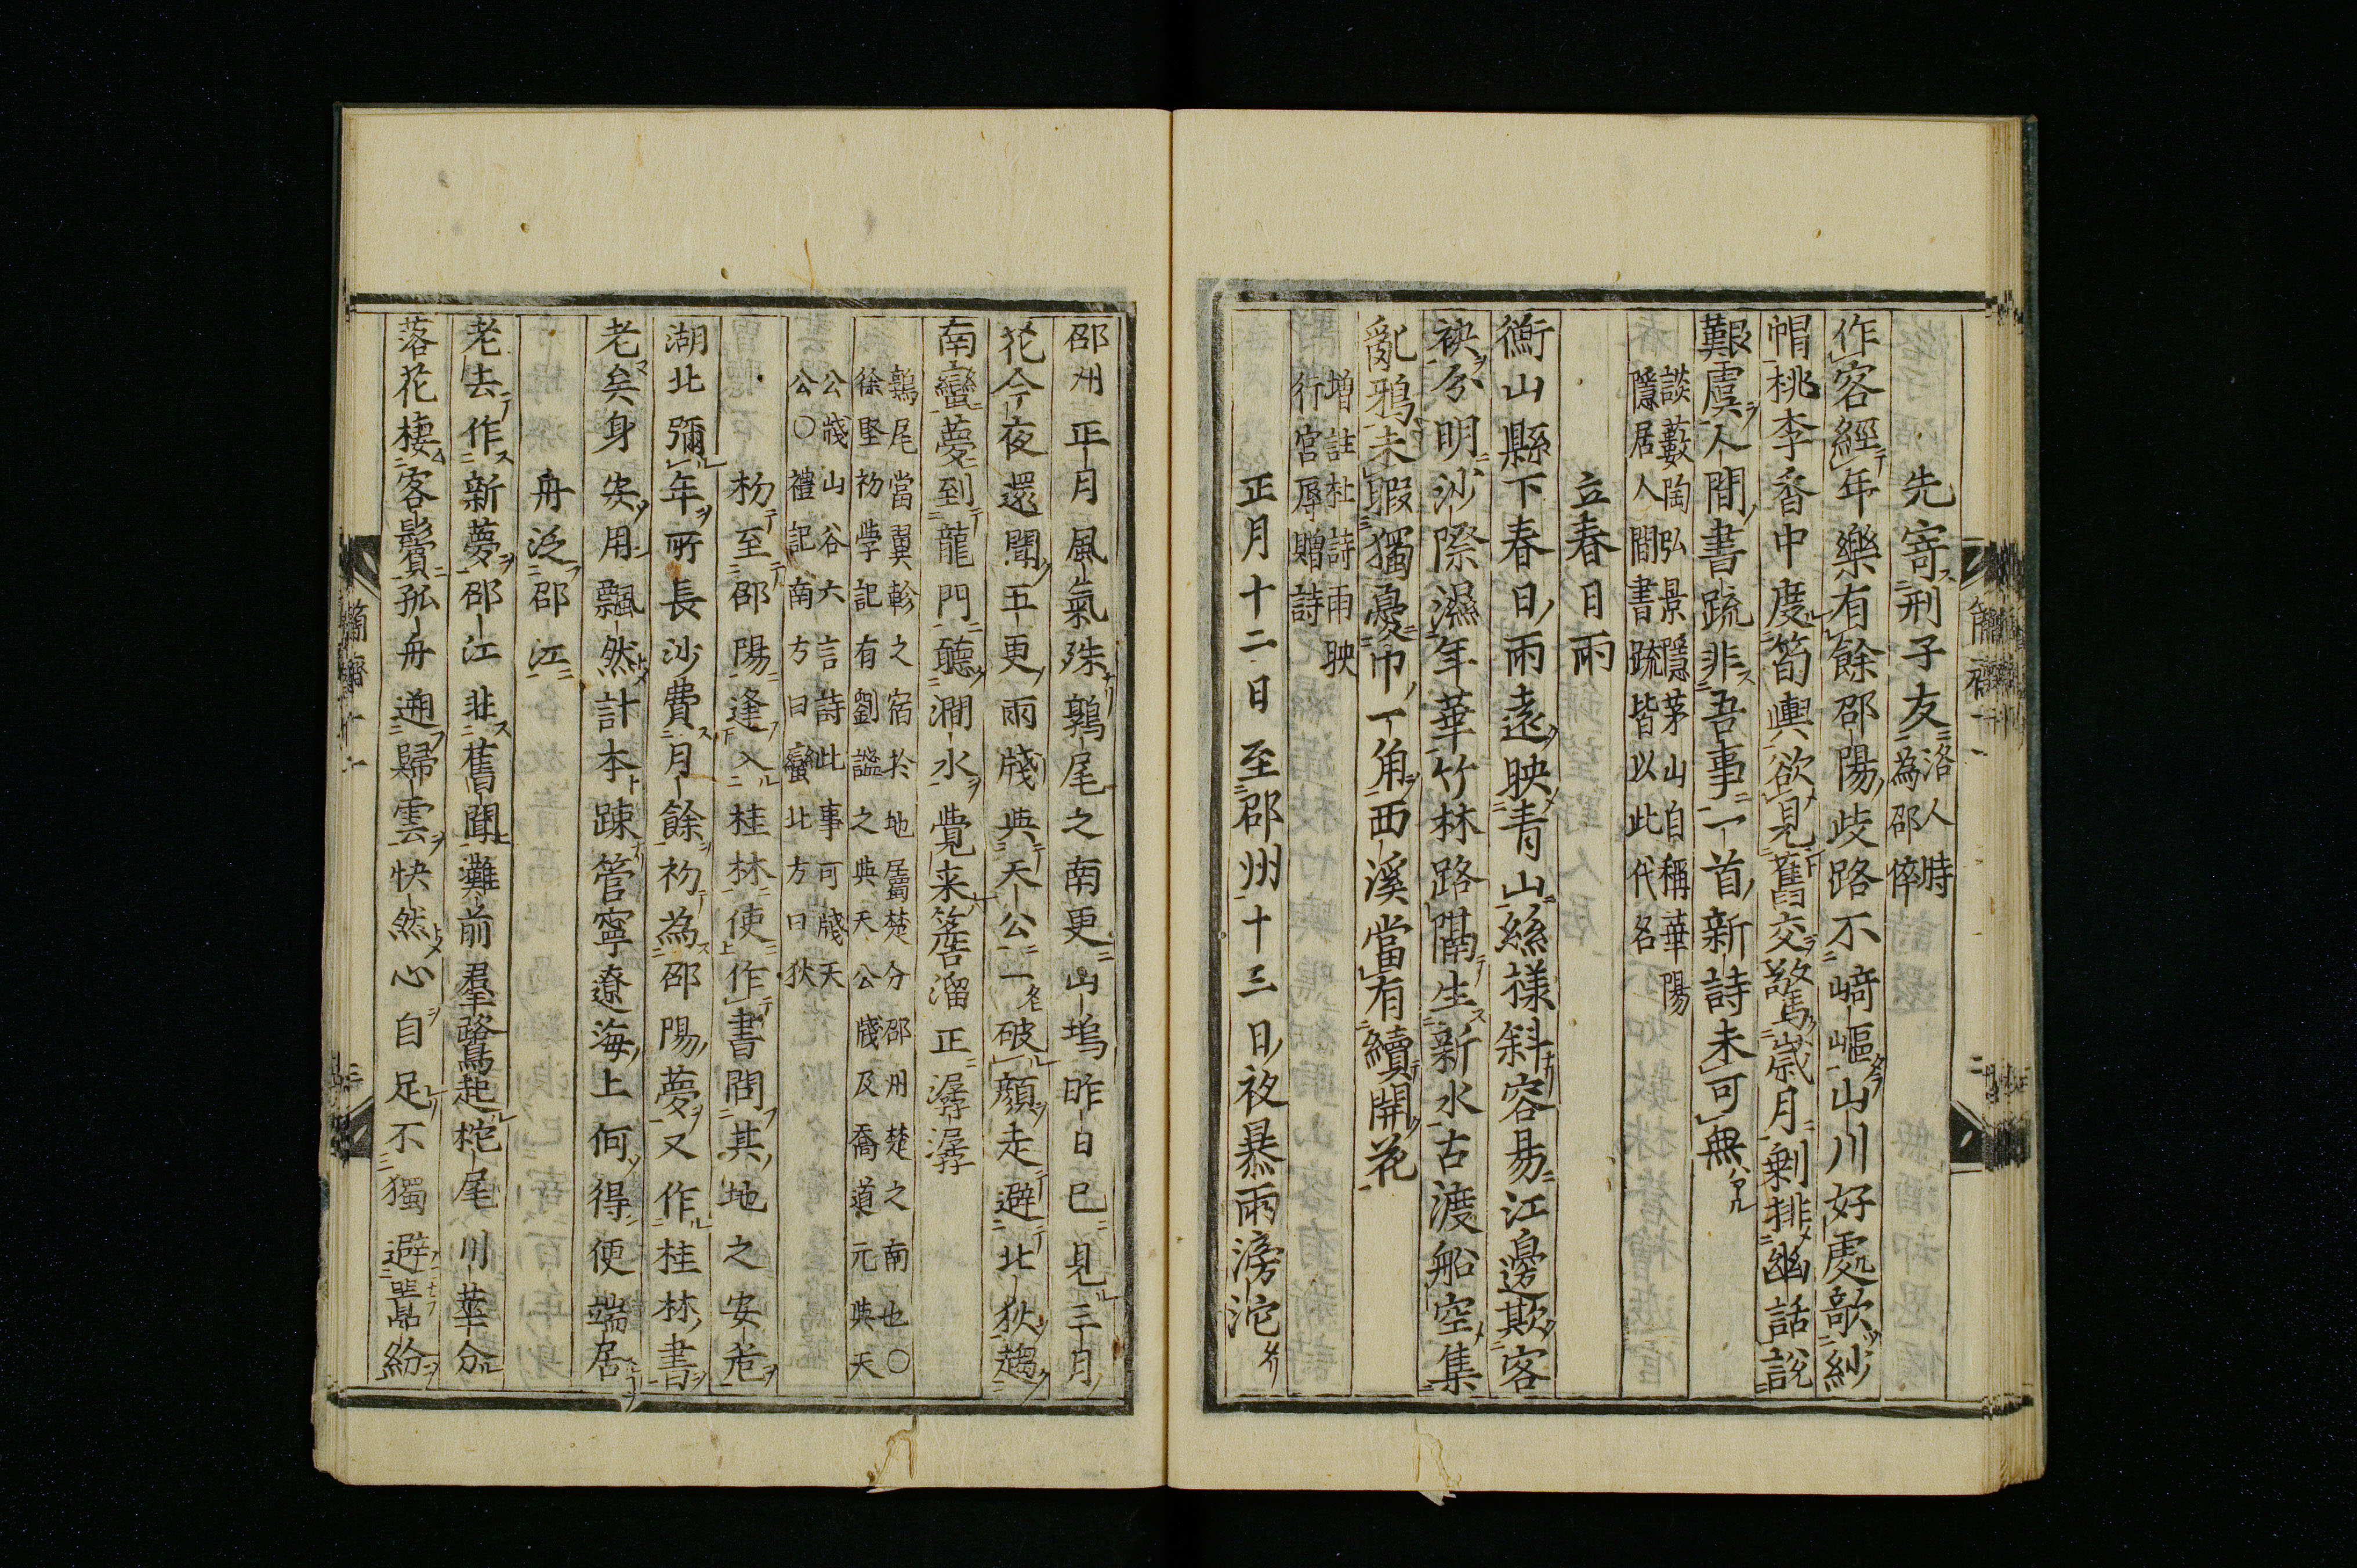 先寄刑子友洛人時為邵倅
作客經年樂有餘邵陽歧路不﨑嶇山川好處歌紗
帽桃李香中度筍輿欲見舊交驚歳月剰排幽話說
艱虞人間書疏非吾事一首新詩未可無
談藪陶弘景隱茅山自稱華陽
隱居人間書疏皆以此代名
立春日雨
衡山縣下春日雨遠映青山絲様斜容易江邊欺客
袂分明沙際濕年華竹林路隔生新水古渡船空集
亂鴉未暇獨憂巾一角西溪當有續開花
増註杜詩雨映
行宮辱贈詩
正月十二日至邵州十三日夜暴雨滂沱
邵州正月風氣殊鶉尾之南更山塢昨日已見三月
花今夜還聞五更雨牋與天公一破顔走避北狄趨
南蠻夢到龍門聽澗水覺来簷溜正潺潺
鶉尾當翼軫之宿於地屬楚分邵州楚之南也〇
徐堅初學記有劉謐之與天公牋及喬道元與天
公牋山谷六言詩此事可牋天
公〇禮記南方曰蠻北方曰狄
初至邵陽逢入桂林使作書問其地之安危
湖北彌年所長沙費月餘初為邵陽夢又作桂林書
老矣身安用飄然計本踈管寧遼海上何得便端居
舟泛邵江
老去作新夢邵江非舊聞灘前羣鷺起柁尾川華分
落花棲客鬢孤舟遡歸雲快然心自足不獨避嚻紛